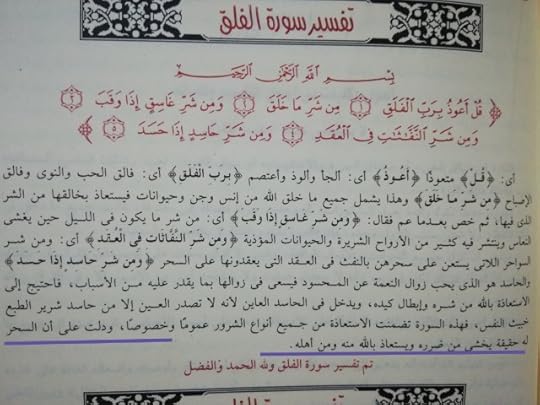 تفسير سورة الفلق
بِسْمِ اللَّهِ الرَّحْمَٰنِ الرَّحِيمِ
﴿ قُلْ أَعُوذُ بِرَبِّ الْفَلَقِ ﴿١﴾ مِن شَرِّ مَا خَلَقَ ﴿٢﴾ وَمِن شَرِّ غَاسِقٍ إِذَا وَقَبَ ﴿٣﴾
وَمِن شَرِّ النَّفَّاثَاتِ فِي الْعُقَدِ ﴿٤﴾ وَمِن شَرِّ حَاسِدٍ إِذَا حَسَدَ ﴿٥﴾ ﴾
أى: ﴿قُلْ﴾ متعوذًا ﴿أَعُوذُ﴾ أى: ألجأ وألوذ وأعتصم ﴿بِرَبِّ الْفَلَقِ﴾ أى: فالق الحب والنوى وفالق
الإصباح ﴿مِن شَرِّ مَا خَلَقَ﴾ وهذا يشمل جميع ما خلق الله من إنس وجن وحيوانات فيستعاذ بخالقها من الشر
الذى فيها، ثم خص بعدما عم فقال: ﴿وَمِن شَرِّ غَاسِقٍ إِذَا وَقَبَ﴾ أى: من شر ما يكون فى الليل حين يغشى
النعاس وينتشر فيه كثير من الأرواح الشريرة والحيوانات المؤذية ﴿وَمِن شَرِّ النَّفَّاثَاتِ فِي الْعُقَدِ﴾ أى: ومن شر
السواحر اللاتى يستعن على سحرهن بالنفث فى العقد التى يعقدونها على السحر ﴿وَمِن شَرِّ حَاسِدٍ إِذَا حَسَدَ﴾
والحاسد هو الذى يحب زوال النعمة عن المحسود فيسعى فى زوالها بما يقدر عليه من الأسباب، فاحتيج إلى
الاستعاذة بالله من شره وإبطال كيده، ويدخل فى الحاسد العاين لأنه لا تصدر العين إلا من حاسد شرير الطبع
خبيث النفس، فهذه السورة تضمنت الاستعاذة من جميع أنواع الشرور عمومًا وخصوصًا، ودلت على أن السحر
له حقيقة يخشى من ضرره ويستعاذ بالله منه ومن أهله.
تم تفسير سورة الفلق ولله الحمد والفضل